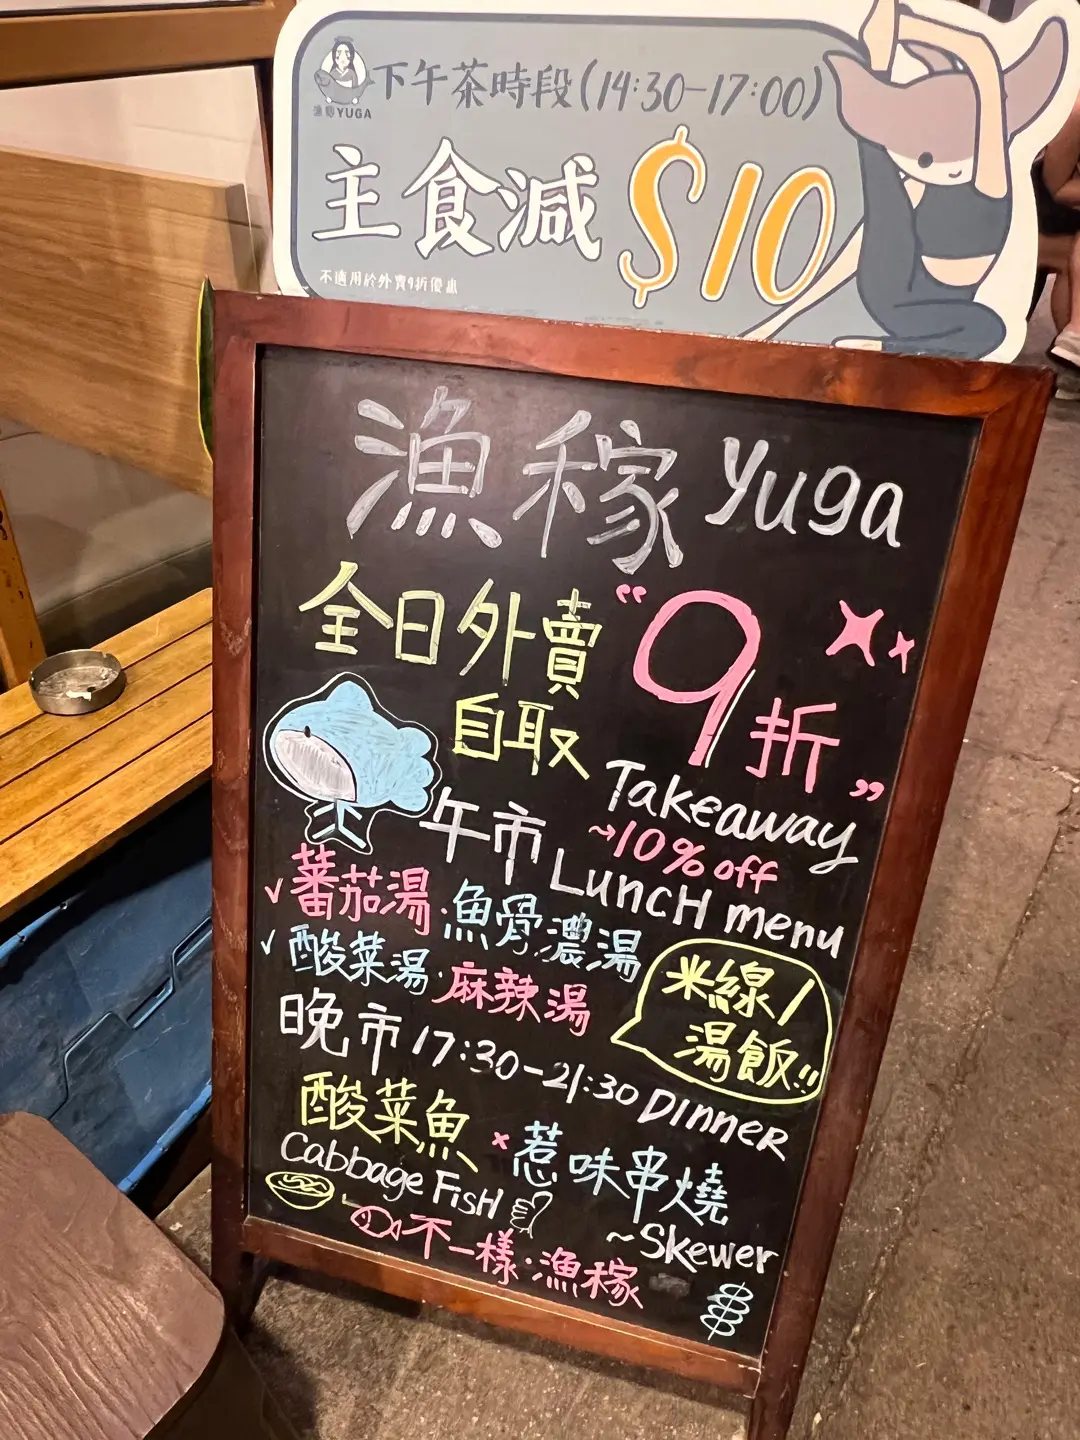 漁稼YUGA
下午茶時段(14:30-17:00)
主食減 $10
不適用於外賣9折優惠
漁稼 Yuga
全日外賣 "9折"
自取
Takeaway
~10% off
午市 LuncH menu
✓蕃茄湯·魚骨濃湯
✓酸菜湯·麻辣湯
米線/
湯飯!!
晚市 17:30-21:30 DInneR
酸菜魚 × 惹味串燒
Cabbage FisH
~Skewer
不一樣·漁稼